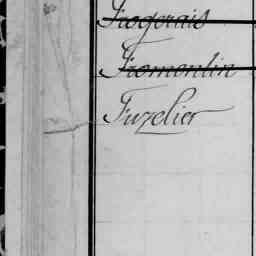 Frogerais
Fromentin
Fuzelier